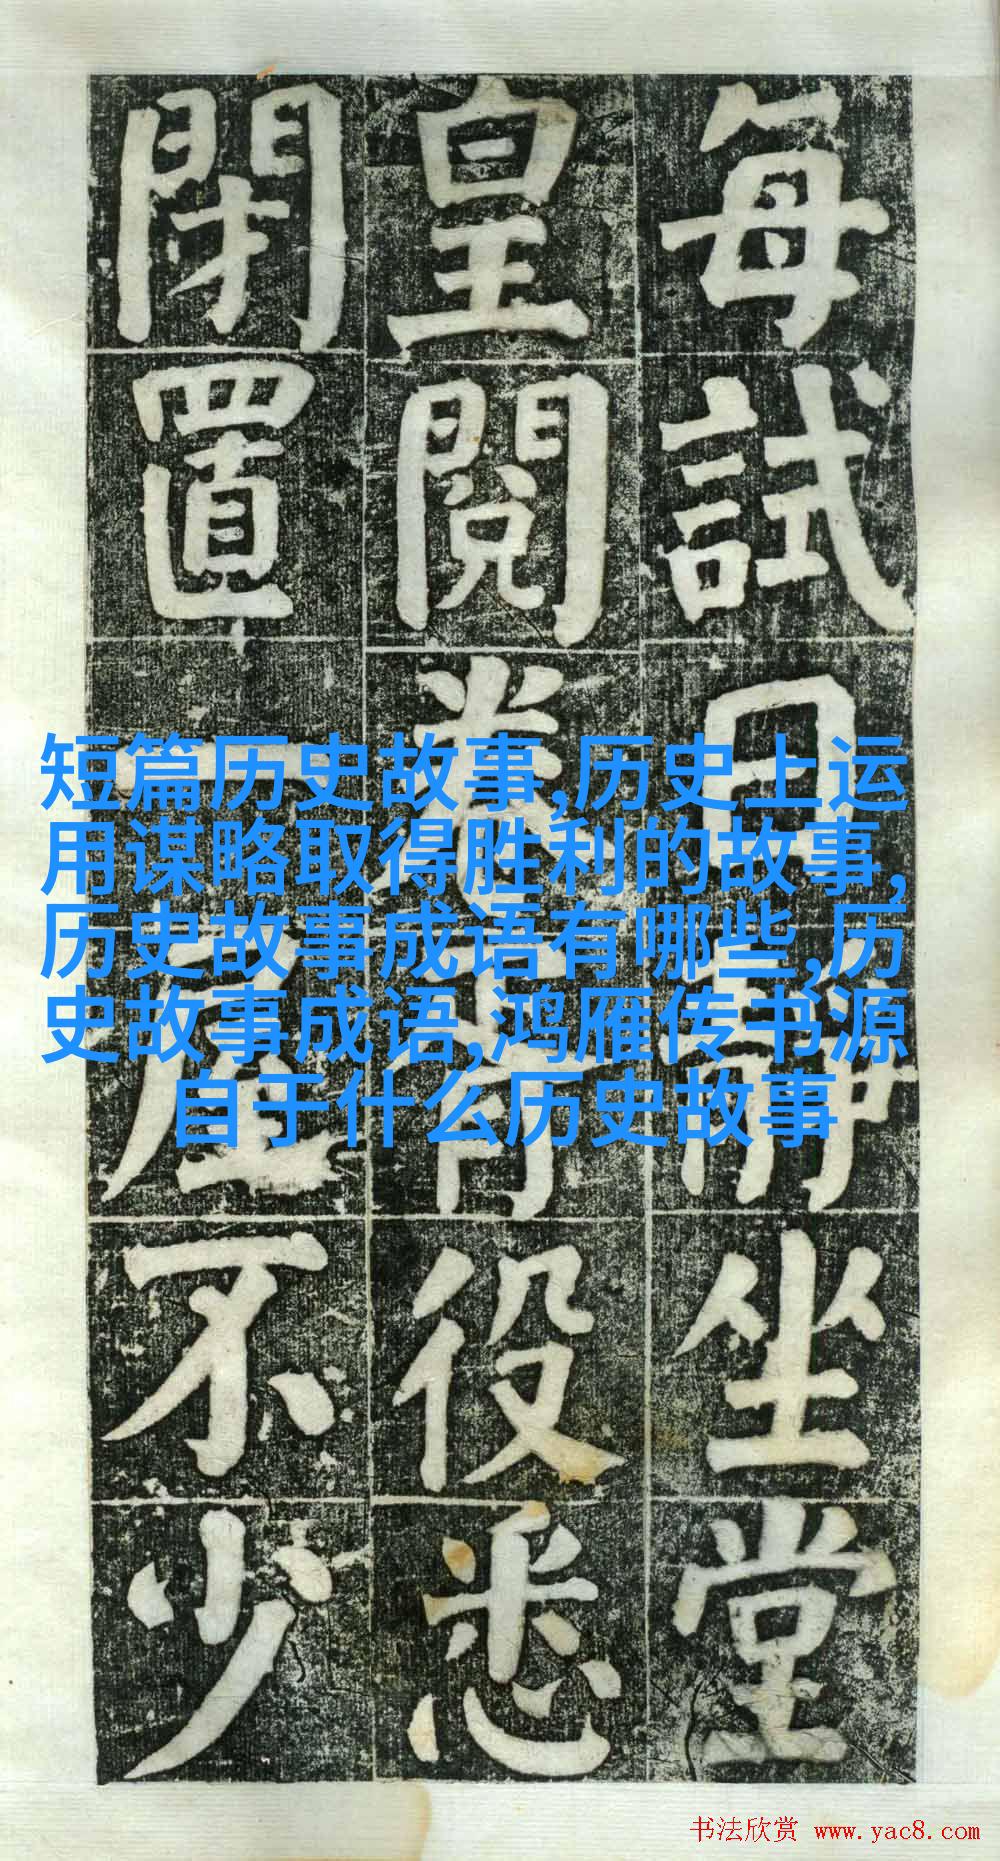 每試日坐堂
皇閱卷胥役悉
閉置一屋不少
短篇历史故事,历史上运
用谋略取得胜利的故事,
历史故事成语有哪些,历
史故事成语,鸿雁传书源
自于什么历史故事
书法欣赏 www.yac8.com